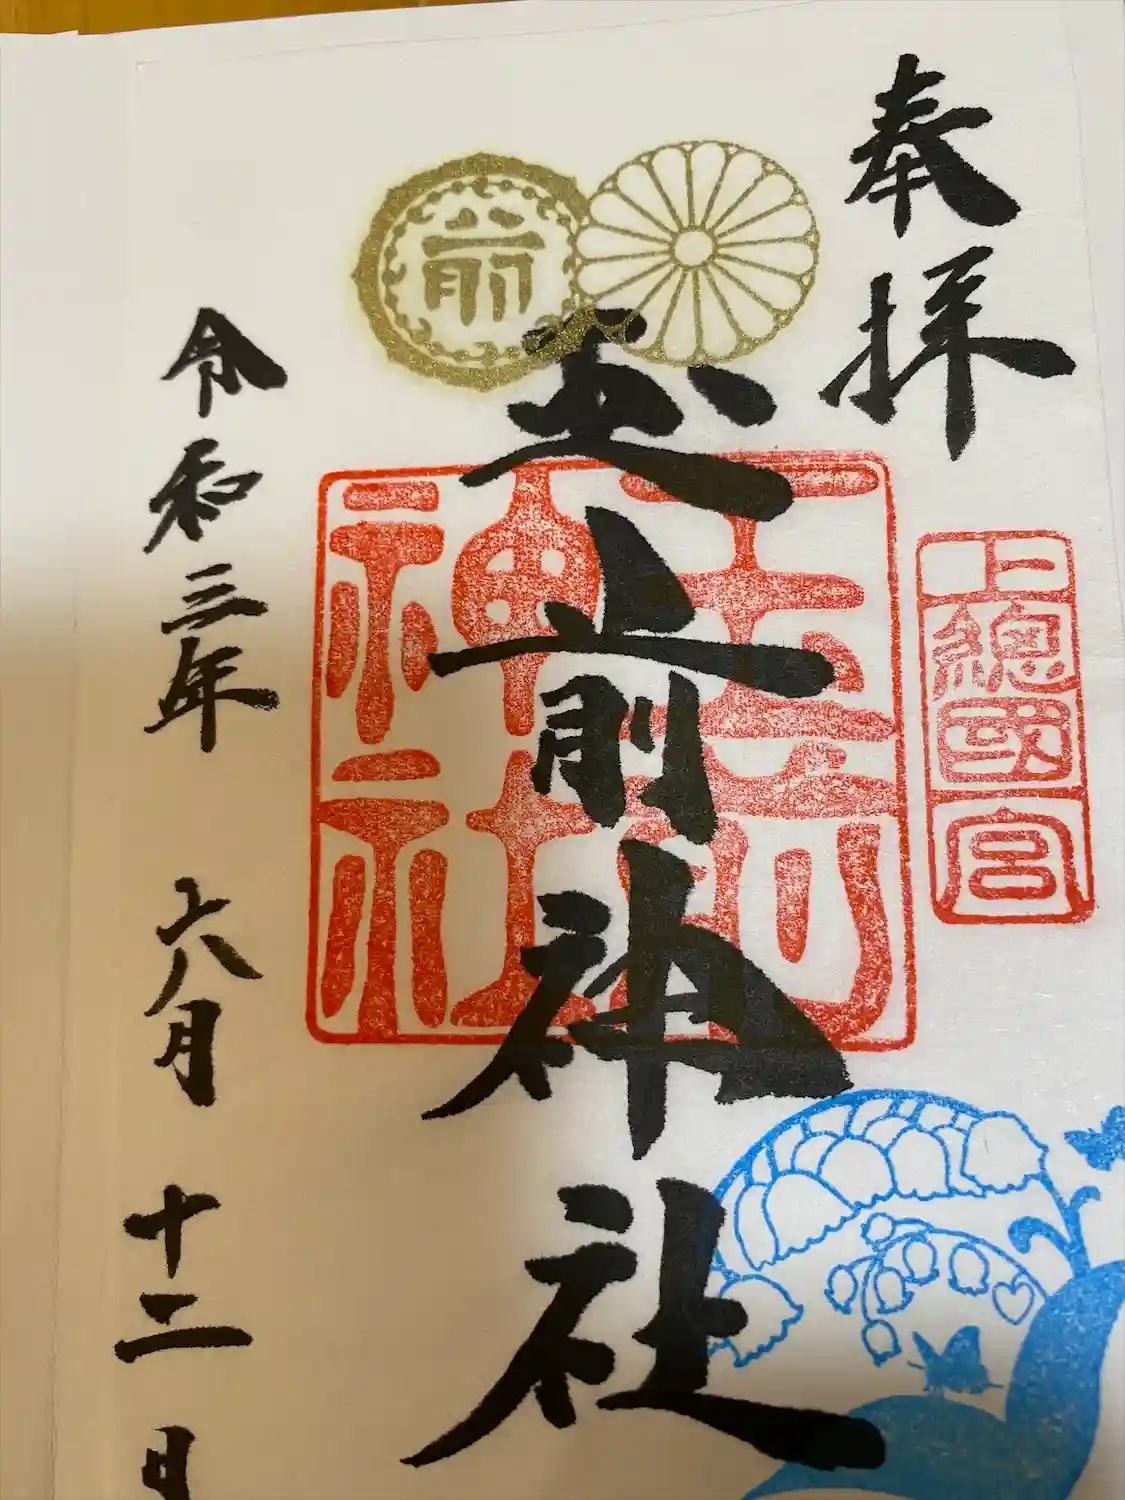 奉拝
上總國一宮
前
玉前神社
玉前神社
令和三年 六月 十二日